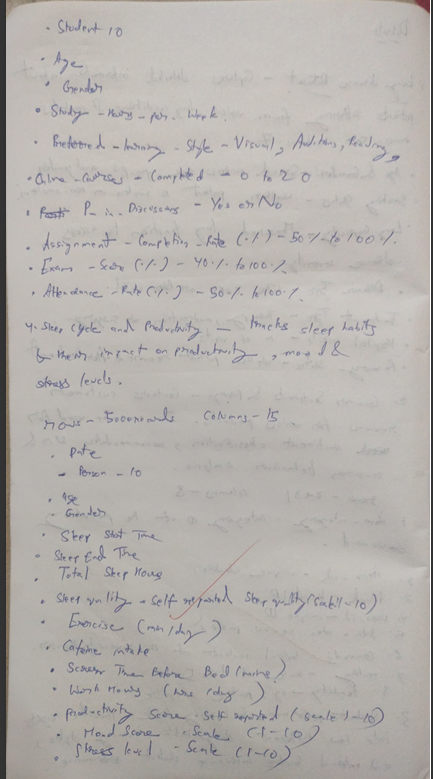 • Student 10
• Age
• Gender
• Study - Hours - per. Week
• Preferred - Learning - Style - Visual, Auditory, Reading,
• Online - Courses - Completed - 0 to 20
• P- in. Discussions - Yes or No
• Assignment - Completion - Rate (.%) - 50% to 100%.
• Exam - Score (.%) - 40% to 100%.
• Attendance - Rate (%) - 50% to 100%.
4. Sleep cycle and Productivity - tracks sleep habits
& their impact on productivity, mood &
stress levels.
rows - 5000 Columns - 15
• Date
- Person - 10
• Age
- Gender
• Sleep Start Time
• Sleep End Time
• Total Sleep Hours
• Sleep quality - self reported Sleep quality (Scale 1-10)
• Exercise (min/day)
• Cafeine intake
• Screen Time Before Bed (mins)
• Work Hours (hrs /day)
• Productivity Score - Self reported (Scale 1-10)
• Mood Score - Scale (1-10)
• Stress level - Scale (1-10)